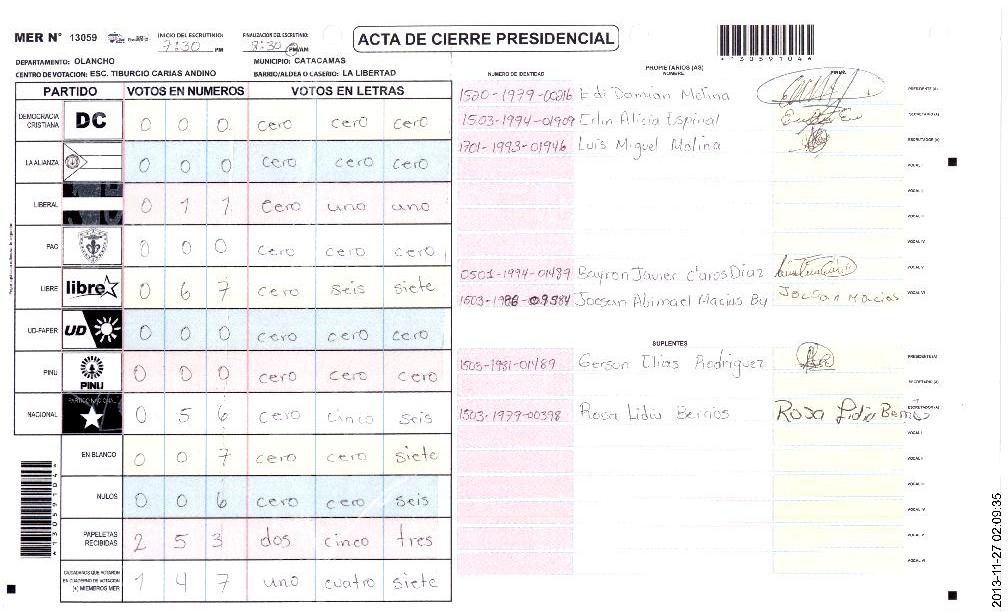 MER N° 13059
INICIO DEL ESCRUTINIO: 7:30 PM
FINALIZACION DEL ESCRUTINIO: 8:30 PM/AM
ACTA DE CIERRE PRESIDENCIAL
*13059104*
DEPARTAMENTO: OLANCHO MUNICIPIO: CATACAMAS
CENTRO DE VOTACION: ESC. TIBURCIO CARIAS ANDINO BARRIO/ALDEA O CASERIO: LA LIBERTAD
PARTIDO VOTOS EN NUMEROS VOTOS EN LETRAS
DEMOCRACIA CRISTIANA DC 0 0 0 cero cero cero
LA ALIANZA 0 0 0 cero cero cero
LIBERAL 0 1 1 cero uno uno
PAC 0 0 0 cero cero cero
LIBRE libre 0 6 7 cero seis siete
UD-FAPER UD 0 0 0 cero cero cero
PINU PINU 0 0 0 cero cero cero
NACIONAL PARTIDO NACIONAL 0 5 6 cero cinco seis
EN BLANCO 0 0 7 cero cero siete
NULOS 0 0 6 cero cero seis
PAPELETAS RECIBIDAS 2 5 3 dos cinco tres
CIUDADANOS QUE VOTARON EN CUADERNO DE VOTACION (+) MIEMBROS MER 1 4 7 uno cuatro siete
*13059104*
PROPIETARIOS (AS)
NUMERO DE IDENTIDAD NOMBRE FIRMA
1520-1979-00216 Edi Damian Molina PRESIDENTE (A)
1503-1994-01909 Erlin Alicia Espinal SECRETARIO (A)
1701-1993-01946 Luis Miguel Molina ESCRUTADOR (A)
VOCAL I
VOCAL II
VOCAL III
VOCAL IV
0501-1994-01489 Bayron Javier Claros Diaz VOCAL V
1503-1986-09584 Joesan Abimael Macias By Joesan Macias VOCAL VI
SUPLENTES
1503-1981-01489 Gerson Elias Rodriguez PRESIDENTE (A)
SECRETARIO (A)
1503-1979-00398 Rosa Lidia Berrios Rosa Lidia Berrios ESCRUTADOR (A)
VOCAL I
VOCAL II
VOCAL III
VOCAL IV
VOCAL V
VOCAL VI
2013-11-27 02:09:35